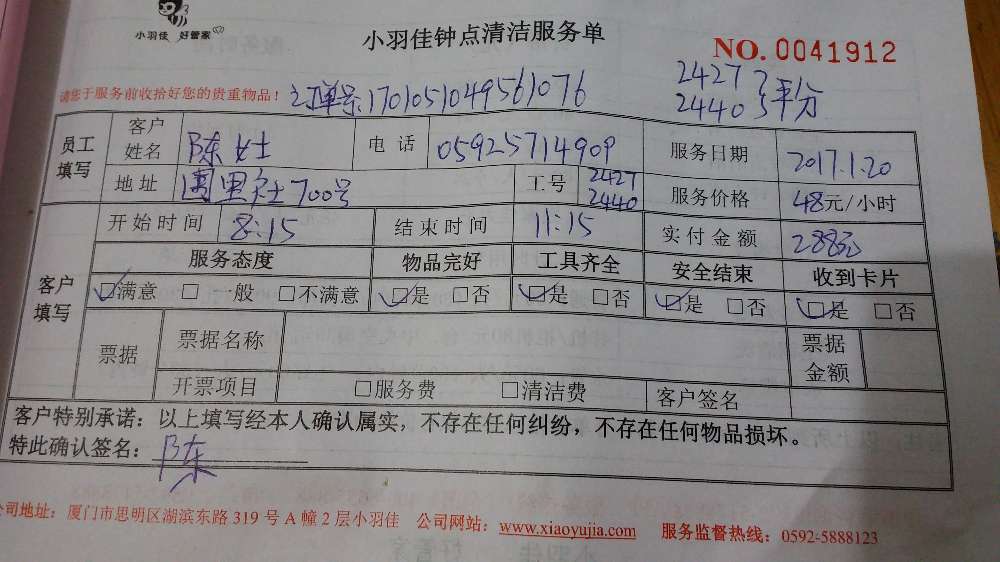 小羽佳 好管家
小羽佳钟点清洁服务单
NO. 0041912
请您于服务前收拾好您的贵重物品！ 订单号:1701051049561076
2427 } 平分
2440
员工填写 客户姓名 陈女士 电话 05925714909 服务日期 2017.1.20
地址 700号 工号 2427 2440 服务价格 48元/小时
客户填写 开始时间 8:15 结束时间 11:15 实付金额 288元
服务态度 物品完好 工具齐全 安全结束 收到卡片
☑满意 □ 一般 □不满意 ☑是 □否 ☑是 □否 ☑是 □否 ☑是 □否
票据 票据名称 票据金额
开票项目 □服务费 □清洁费 客户签名
客户特别承诺：以上填写经本人确认属实，不存在任何纠纷，不存在任何物品损坏。
特此确认签名： 陈
公司地址：厦门市思明区湖滨东路 319 号 A 幢 2 层小羽佳 公司网站：www.xiaoyujia.com 服务监督热线：0592-5888123